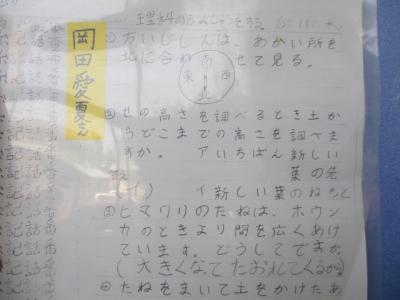 理科の
6. 11. 火
岡田愛夏さん
① 方いじしんは、あかい所を
北に合わせて見る。
南
東 西
北
② せの高さを調べるとき土か
らどこまでの高さを調べま
すか。アいちばん新しい
葉の先
(イ) イ新しい葉のねもと
③ ヒマワリのたねは、ホウセン
カのときより間を広くあけ
ています。どうしてですか。
(大きくなてたおれてくるから)
④ たねをまいて土をかけたあ
番
話
記